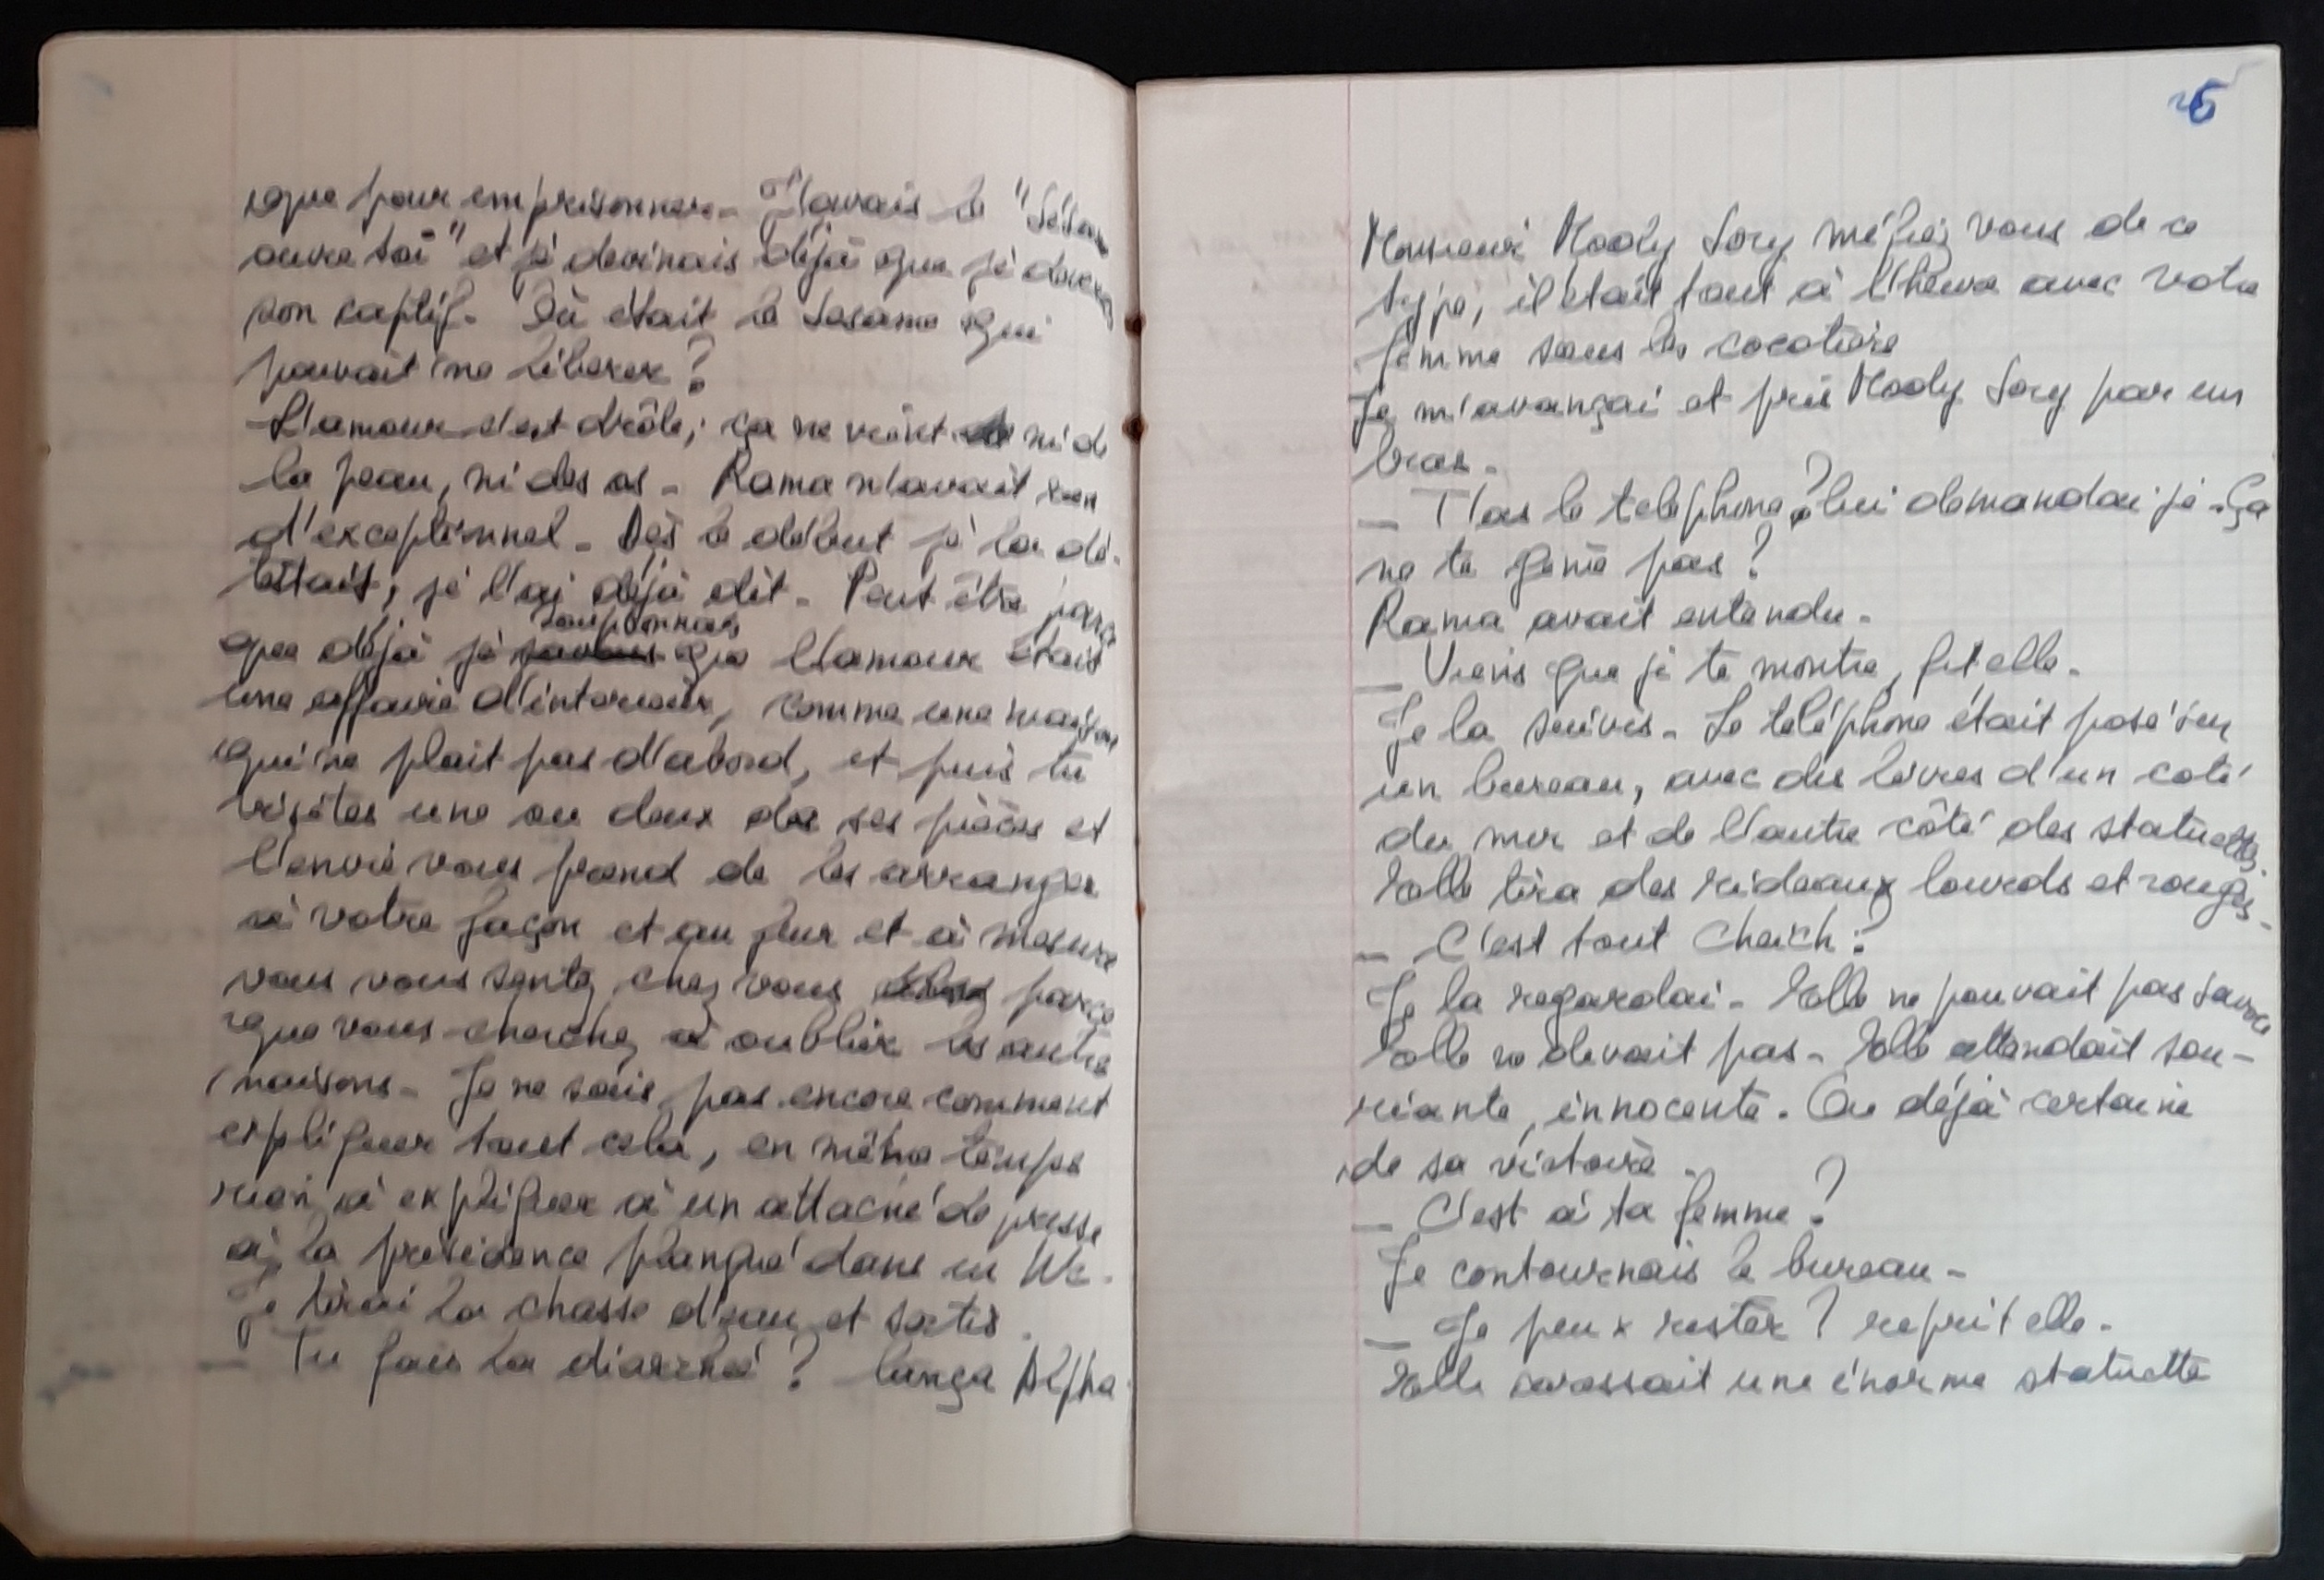 que pour emprisonner. J'avais le "Sésame
ouvre toi" et je devinais déjà que je
son captif. Où était le Sesame qui
pouvait me libérer ?
L'amour c'est drôle; ça ne vient ni de
la peau, ni des os. Rama n'avait rien
d'exceptionnel. Dès le début je la dé-
testais, je l'ai déjà dit. Peut être parce
soupçonnais
que déjà je savais que l'amour était
une affaire d'interieur, comme une maison
qui ne plait pas d'abord, et puis tu
visites une ou deux de ses pièces et
l'envie vous prend de les arranger
à votre façon et au fur et à mesure
vous vous sentez chez vous parce
que vous cherchez à oublier les autres
maisons. Je ne sais pas encore comment
expliquer tout cela, en même temps
rien à expliquer à un attaché de presse
à la présidence planqué dans un Wc.
Je tirai la chasse d'eau et sortis.
— Tu fais la diarrhé ? lança Alpha.
25
Monsieur Mody Sory méfiez vous de ce
type, il était tout à l'heure avec votre
femme sous les cocotiers
Je m'avançai et pris Mody Sory par un
bras.
— T'as le telephone ? lui demandai je. Ça
ne te gene pas ?
Rama avait entendu.
— Viens que je te montre, fit elle.
Je la suivis. Le teléphone était posé sur
un bureau, avec des livres d'un coté
du mur et de l'autre côté des statuettes.
Elle tira des rideaux lourds et rouges.
— C'est tout Cheich ?
Je la regardai. Elle ne pouvait pas savoir
Elle ne devait pas. Elle attendait sou-
riante, innocente. Ou déjà certaine
de sa victoire.
— C'est à ta femme ?
Je contournais le bureau.
— Je peux rester ? reprit elle.
Elle caressait une énorme statuette